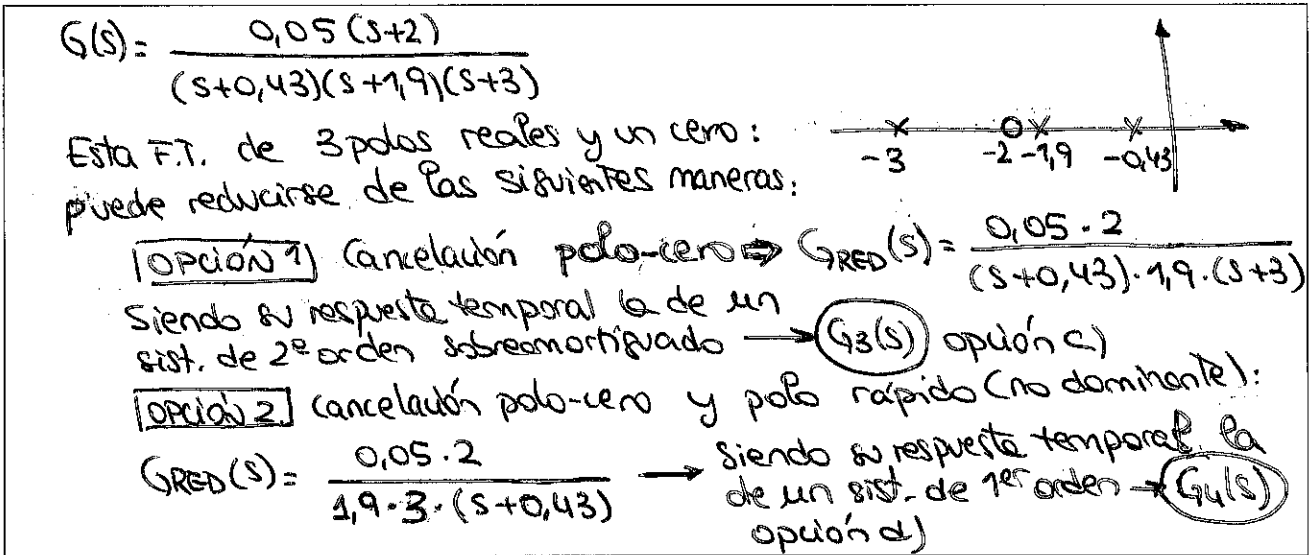 G(s) = 0,05 (s+2) / (s+0,43)(s+1,9)(s+3)
Esta F.T. de 3 polos reales y un cero:
-3 -2 -1,9 -0,43
puede reducirse de las siguientes maneras:
OPCIÓN 1 Cancelación polo-cero ⇒ GRED(s) = 0,05 · 2 / (s+0,43) · 1,9 · (s+3)
Siendo su respuesta temporal la de un
sist. de 2º orden sobreamortiguado → G3(s) opción c)
OPCIÓN 2 cancelación polo-cero y polo rápido (no dominante):
GRED(s) = 0,05 · 2 / 1,9 · 3 · (s+0,43) → Siendo su respuesta temporal la
de un sist. de 1er orden → G4(s)
opción d)